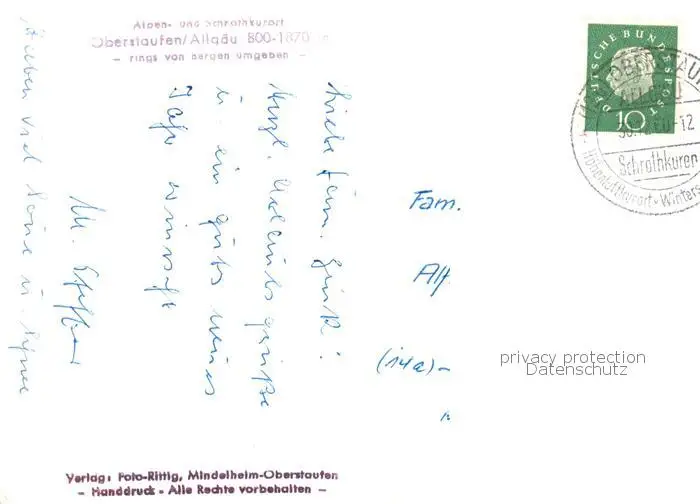 Alpen- und Schrothkurort
Oberstaufen/Allgäu 800-1870 m
– rings von Bergen umgeben –
DEUTSCHE BUNDESPOST
10
OBERSTAUFEN
ALLGÄU
-12
Schrothkuren
Höhenluftkurort - Winters
Liebe Fam.
Herzl.
u. ein gutes neues
Jahr wünscht
M.
haben viel Sonne u.
Fam.
Alf.
(14a)–
privacy protection
Datenschutz
Verlag: Foto-Rittig, Mindelheim-Oberstaufen
– Handdruck - Alle Rechte vorbehalten –